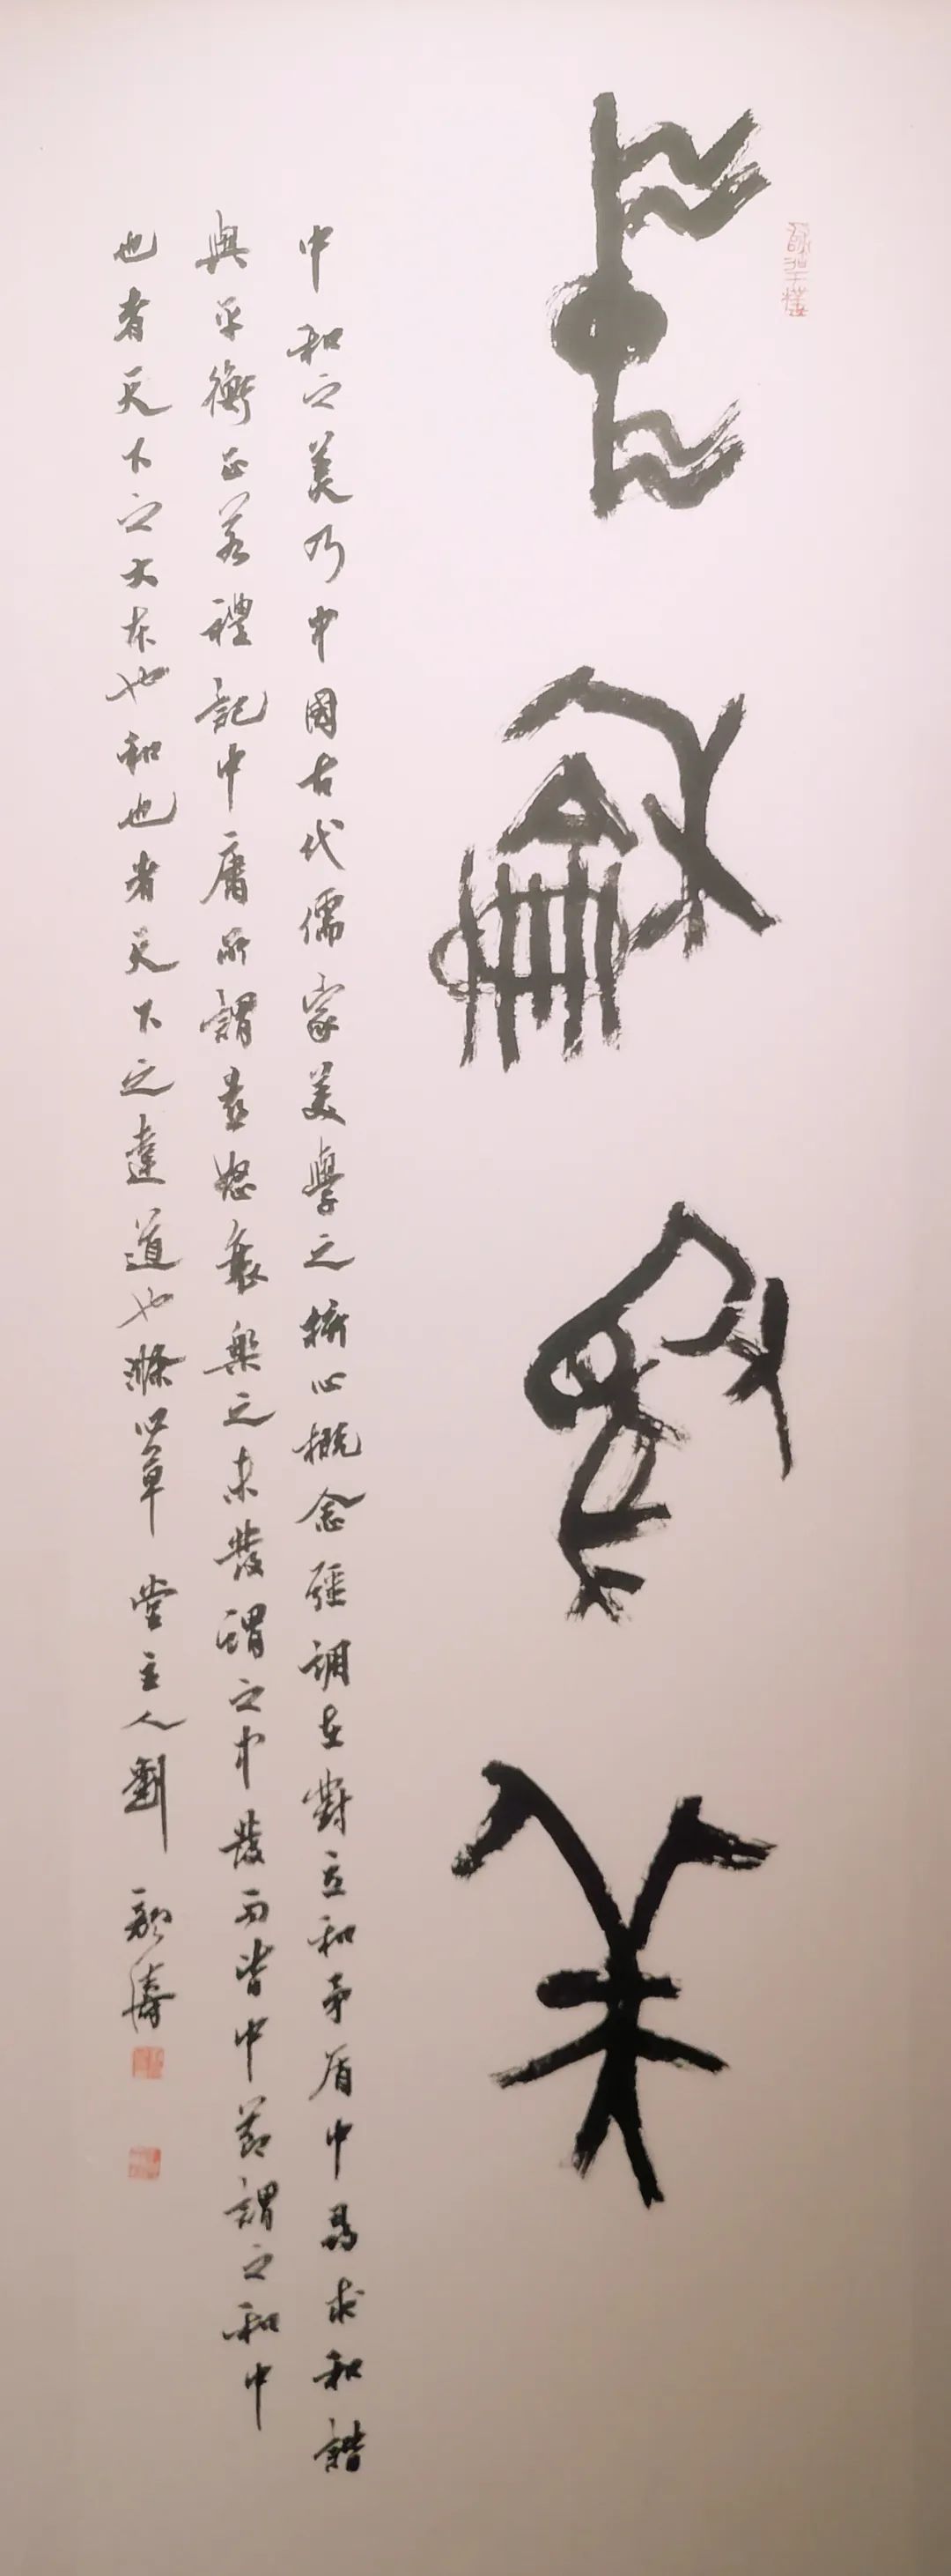 中龢為美
中和之美乃中國古代儒家美學之核心概念强調在對立和矛盾中尋求和諧
與平衡正若禮記中庸所謂喜怒哀樂之未發謂之中發而皆中節謂之和中
也者天下之大本也和也者天下之達道也滌草堂主人劉顏濤